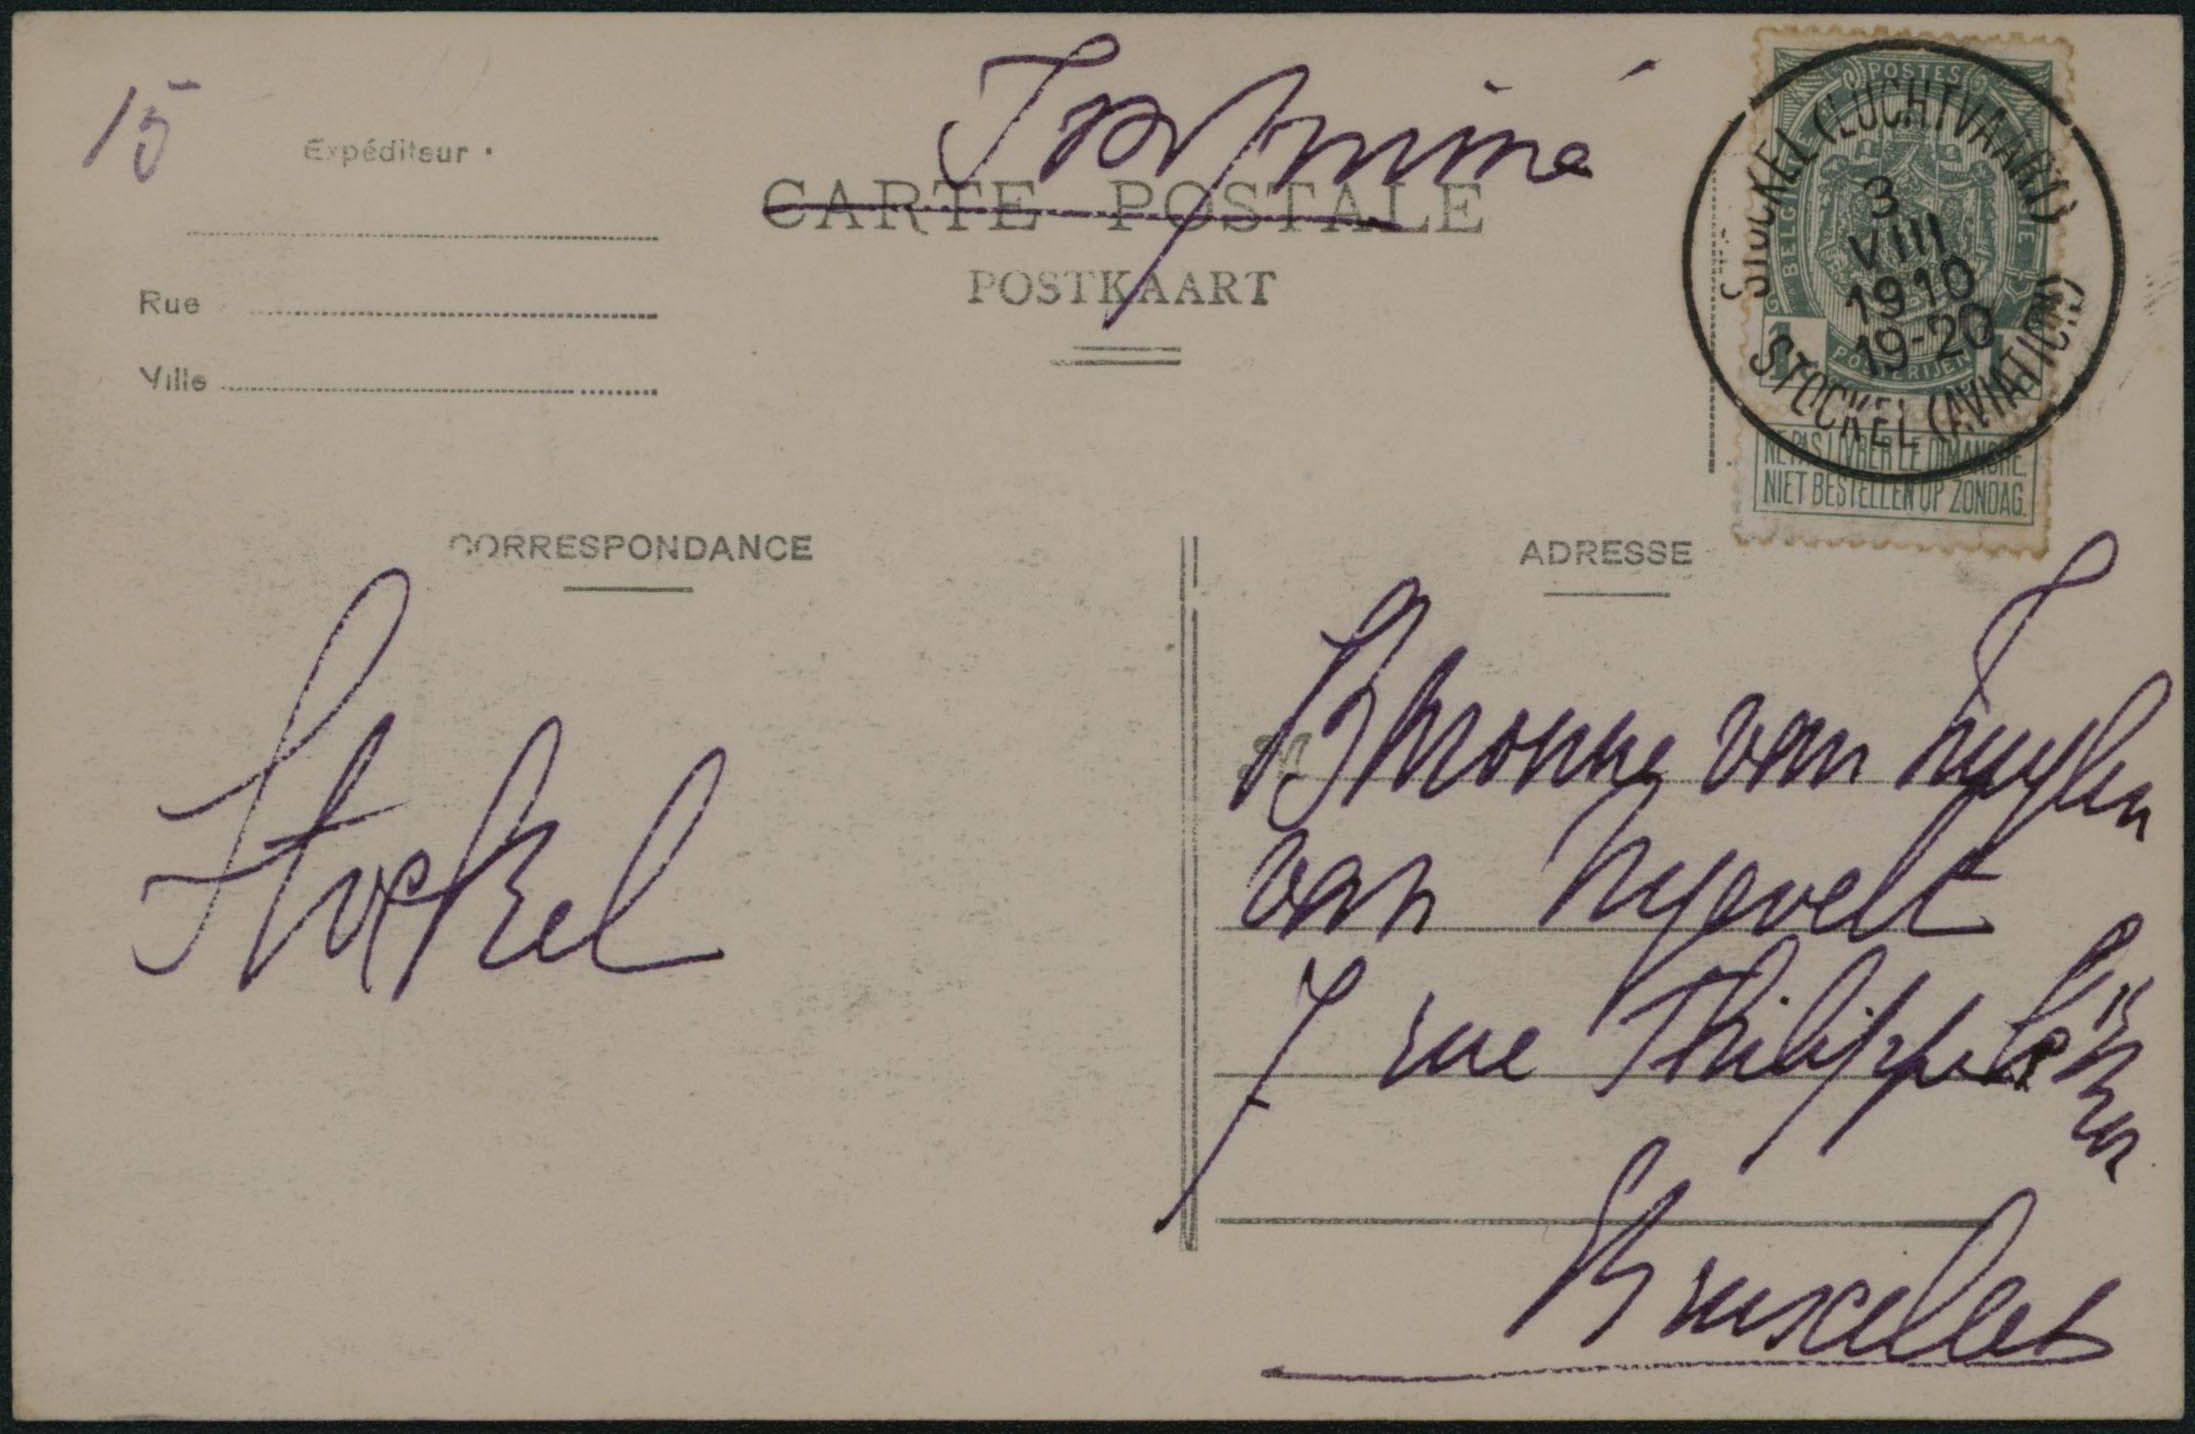 15
Imprimé
Expéditeur
CARTE POSTALE
POSTKAART
Rue
Ville
POSTES
BELGIQUE
BELGIE
1
POSTERIJEN
1
NE PAS LIVRER LE DIMANCHE.
NIET BESTELLEN OP ZONDAG.
STOCKEL (LUCHTVAART)
3
VIII
1910
19-20
STOCKEL (AVIATION)
CORRESPONDANCE
ADRESSE
Stockel
M
Bnonne van Zuylen
van Nyevelt
7 rue Philippe le Bon
Bruxelles